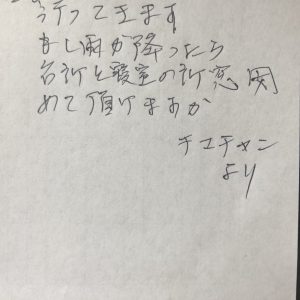 行ってきます
もし雨が降ったら
台所と寝室の所窓閉
めて頂けますか
チエチャン
より